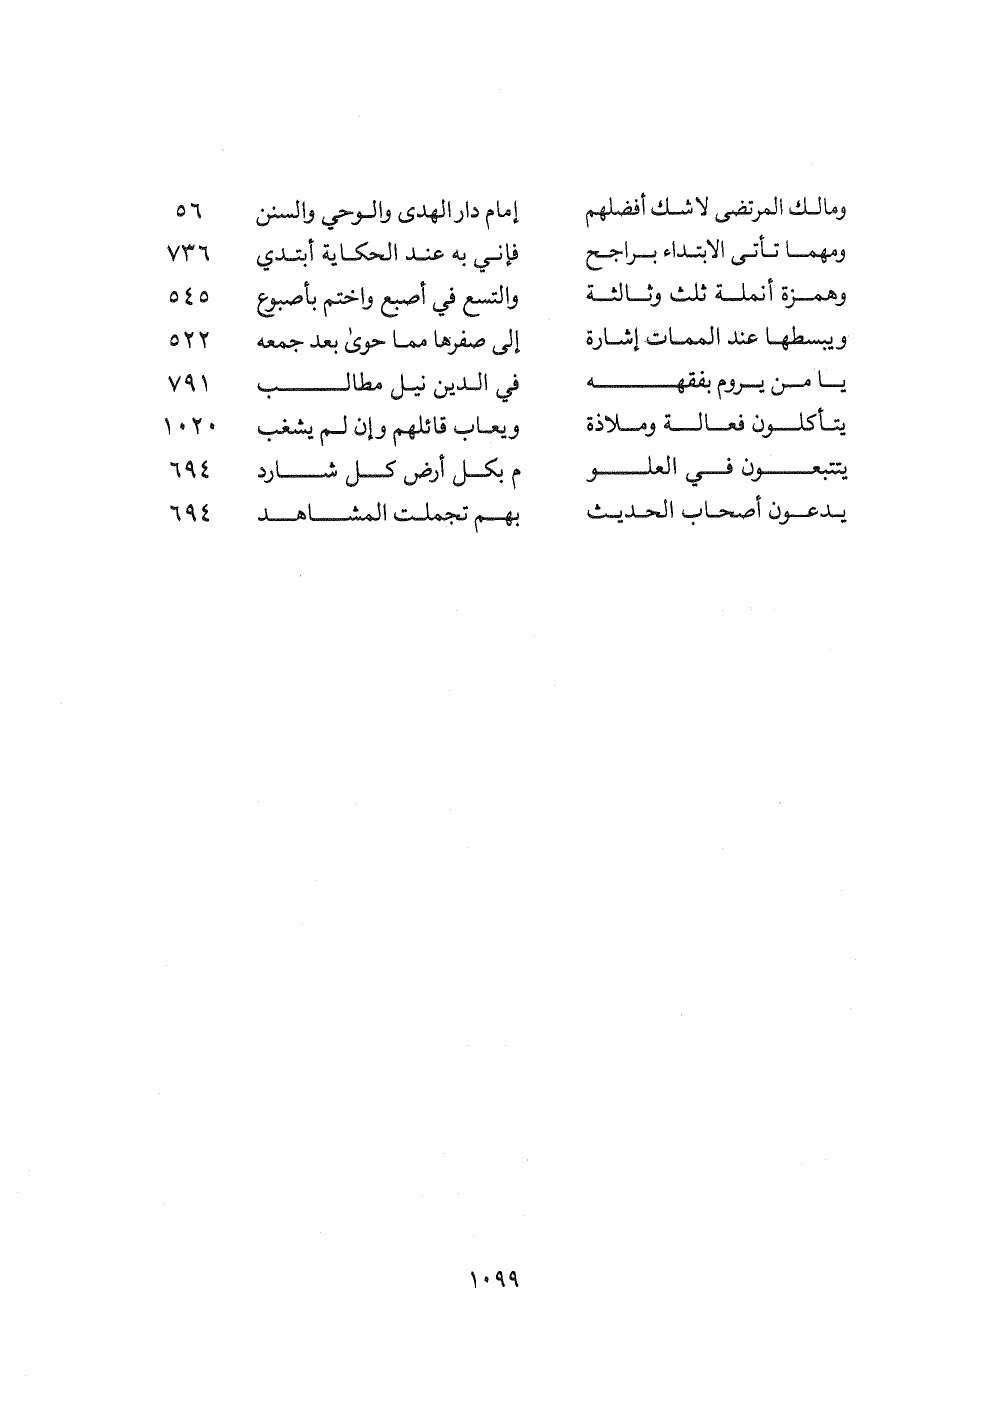 ومالك المرتضى لاشك أفضلهم إمام دار الهدى والوحي والسنن ٥٦
ومهما تأتى الابتداء براجح فإني به عند الحكاية أبتدي ٧٣٦
وهمزة أنملة ثلث وثالثة والتسع في أصبع واختم بأصبوع ٥٤٥
ويبسطها عند الممات إشارة إلى صفرها مما حوىٰ بعد جمعه ٥٢٢
يا من يروم بفقهه في الدين نيل مطالب ٧٩١
يتأكلون فعالة وملاذة ويعاب قائلهم وإن لم يشغب ١٠٢٠
يتتبعون في العلو م بكل أرض كل شارد ٦٩٤
يدعون أصحاب الحديث بهم تجملت المشاهد ٦٩٤
١٠٩٩